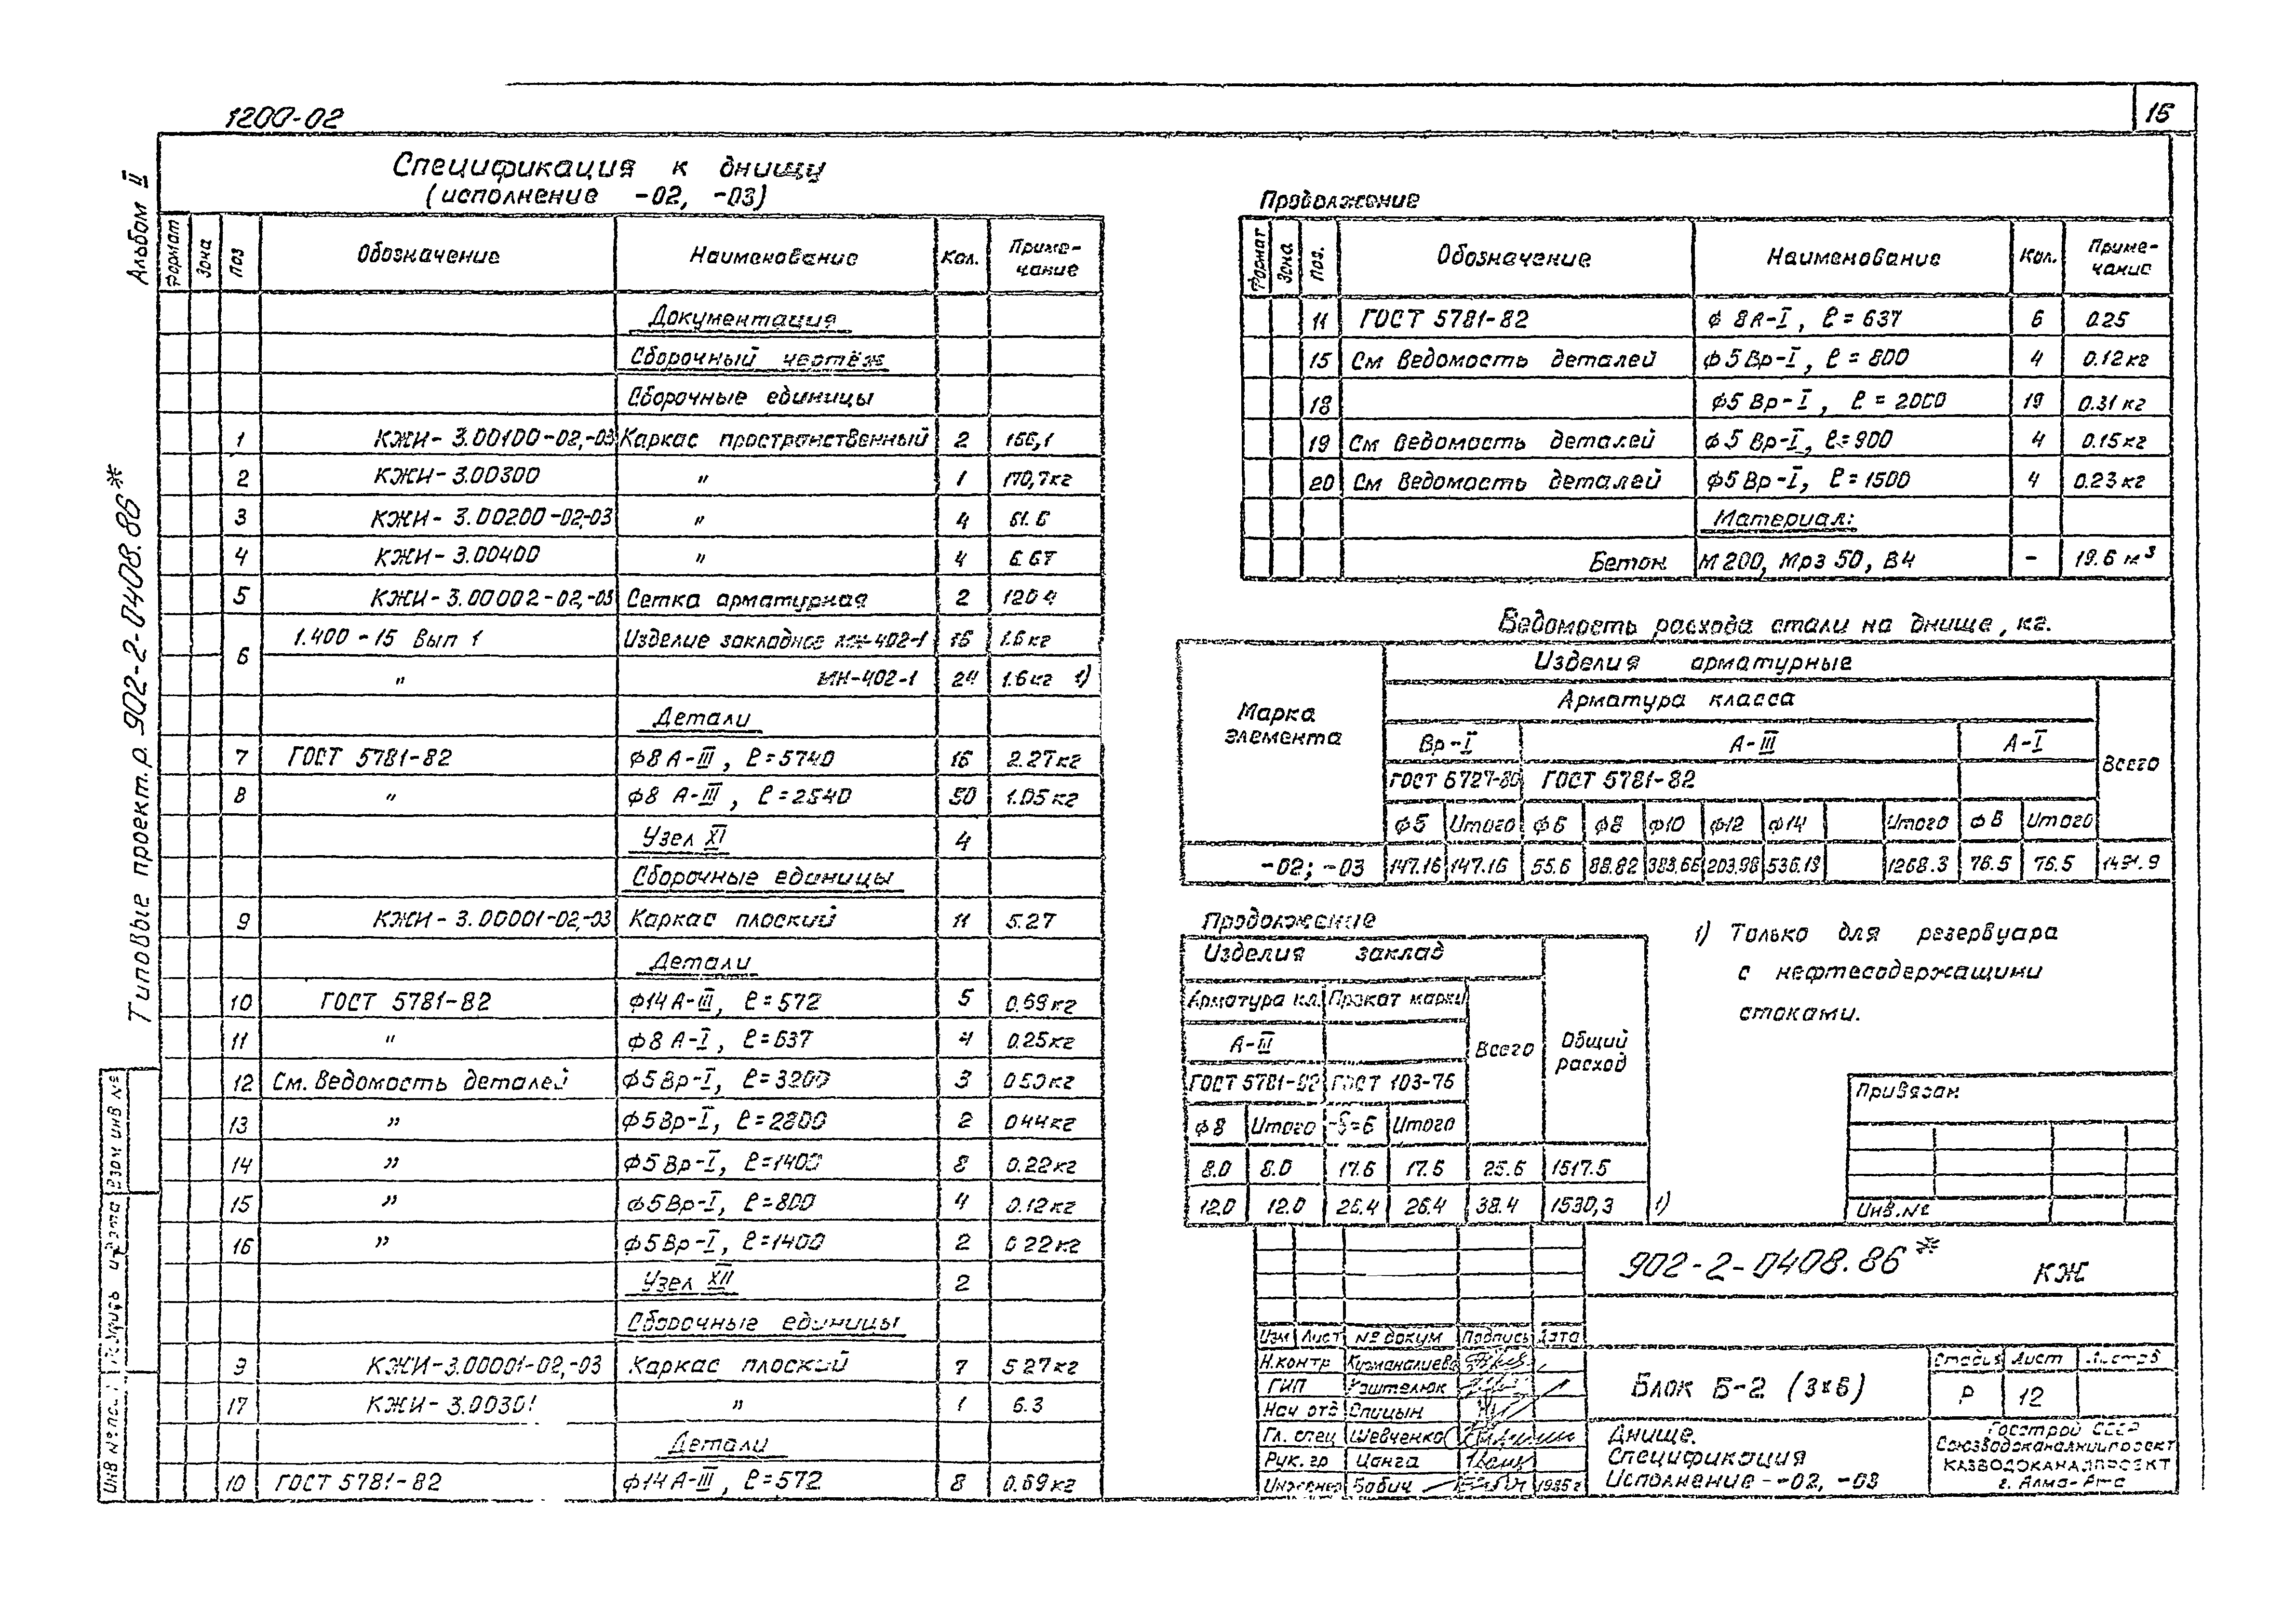 1200-02
15
Альбом II
Типовые проект. р. 902-2-0408.86*
Спецификация к днищу
(исполнение -02, -03)
Формат Зона Поз Обозначение Наименование Кол. Приме-чание
Документация
Сборочный чертёж
Сборочные единицы
1 КЖИ-3.00100-02,-03 Каркас пространственный 2 166,1
2 КЖИ-3.00300 " 1 170,7кг
3 КЖИ-3.00200-02,-03 " 4 61.6
4 КЖИ-3.00400 " 4 6.67
5 КЖИ-3.00002-02,-03 Сетка арматурная 2 120 4
6 1.400-15 Вып 1 Изделие закладное МН-402-1 16 1.6кг
" МН-402-1 24 1.6кг 1)
Детали
7 ГОСТ 5781-82 ф8 А-III, ℓ=5740 16 2.27кг
8 " ф8 А-III, ℓ=2640 50 1.05кг
Узел XI 4
Сборочные единицы
9 КЖИ-3.00001-02,-03 Каркас плоский 11 5.27
Детали
10 ГОСТ 5781-82 ф14 А-III, ℓ=572 5 0.69кг
11 " ф8 А-I, ℓ=637 4 0.25кг
12 См. Ведомость деталей ф5 Вр-I, ℓ=3200 3 0 50кг
13 " ф5 Вр-I, ℓ=2800 2 0 44кг
14 " ф5 Вр-I, ℓ=1400 8 0.22кг
15 " ф5 Вр-I, ℓ=800 4 0.12кг
16 " ф5 Вр-I, ℓ=1400 2 0 22кг
Узел XII 2
Сборочные единицы
9 КЖИ-3.00001-02,-03 Каркас плоский 7 5 27кг
17 КЖИ-3.00301 " 1 6.3
Детали
10 ГОСТ 5781-82 ф14 А-III, ℓ=572 8 0.69кг
Продолжение
Формат Зона Поз. Обозначение Наименование Кол. Приме-чание
11 ГОСТ 5781-82 ф 8А-I, ℓ=637 6 0.25
15 См Ведомость деталей ф5 Вр-I, ℓ=800 4 0.12кг
18 ф5 Вр-I, ℓ=2000 19 0.31 кг
19 См Ведомость деталей ф5 Вр-I, ℓ=900 4 0.15кг
20 См Ведомость деталей ф5 Вр-I, ℓ=1500 4 0.23 кг
Материал:
Бетон М 200, Мрз 50, В4 - 19.6 м³
Ведомость расхода стали на днище, кг.
Марка элемента
Изделия арматурные
Арматура класса
Вр-I А-III А-I Всего
ГОСТ 6727-80 ГОСТ 5781-82
ф5 Итого ф6 ф8 ф10 ф12 ф14 Итого ф8 Итого
-02; -03 147.16 147.16 55.6 88.82 383.66 203.98 536.19 1268.3 76.5 76.5 1491.9
Продолжение
Изделия заклад
Арматура кл. Прокат марки
А-III Всего Общий расход
ГОСТ 5781-82 ГОСТ 103-76
ф8 Итого -δ=6 Итого
8.0 8.0 17.6 17.6 25.6 1517.5
12.0 12.0 26.4 26.4 38.4 1530,3 1)
1) Только для резервуара
с нефтесодержащими
стоками.
Привязан
Инв.№
902-2-0408.86* КЖ
Изм Лист № докум Подпись Дата
Н.контр Кузманалиева
ГИП
Нач отд Спицын
Гл. спец Шевченко
Рук. гр Цанга
Инженер Бабич 1985г
Блок Б-2 (3×6)
Стадия Лист Листов
Р 12
Днище.
Спецификация
Исполнение -02, -03
Госстрой СССР
Союзводоканалниипроект
КАЗВОДОКАНАЛПРОЕКТ
г. Алма-Ата
Взам инв №
Подпись и дата
Инв № подл